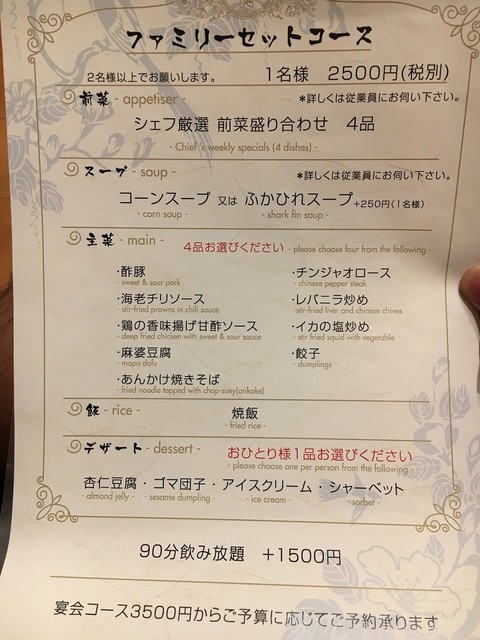 ファミリーセットコース
2名様以上でお願いします。 1名様 2500円(税別)
前菜 - appetiser - *詳しくは従業員にお伺い下さい。
シェフ厳選 前菜盛り合わせ 4品
- Chief's weekly specials (4 dishes) -
スープ - soup - *詳しくは従業員にお伺い下さい。
コーンスープ 又は ふかひれスープ +250円(1名様)
- corn soup - - shark fin soup -
主菜 - main - 4品お選びください - please choose four from the following -
・酢豚 ・チンジャオロース
- sweet & sour pork - chinese pepper steak
・海老チリソース ・レバニラ炒め
- stir-fried prawns in chili sauce - stir-fried liver and chinese chives
・鶏の香味揚げ甘酢ソース ・イカの塩炒め
- deep fried chicken with sweet & sour sauce - stir fried squid with vegetable
・麻婆豆腐 ・餃子
- mapo dofu - dumplings
・あんかけ焼きそば
- fried noodle topped with chop-suey(ankake)
飯 - rice - 焼飯
- fried rice -
デザート - dessert - おひとり様1品お選びください
- please choose one per person from the following -
杏仁豆腐・ゴマ団子・アイスクリーム・シャーベット
- almond jelly - - sesame dumpling - - ice cream - - sorbet -
90分飲み放題 +1500円
宴会コース3500円からご予算に応じてご予約承ります